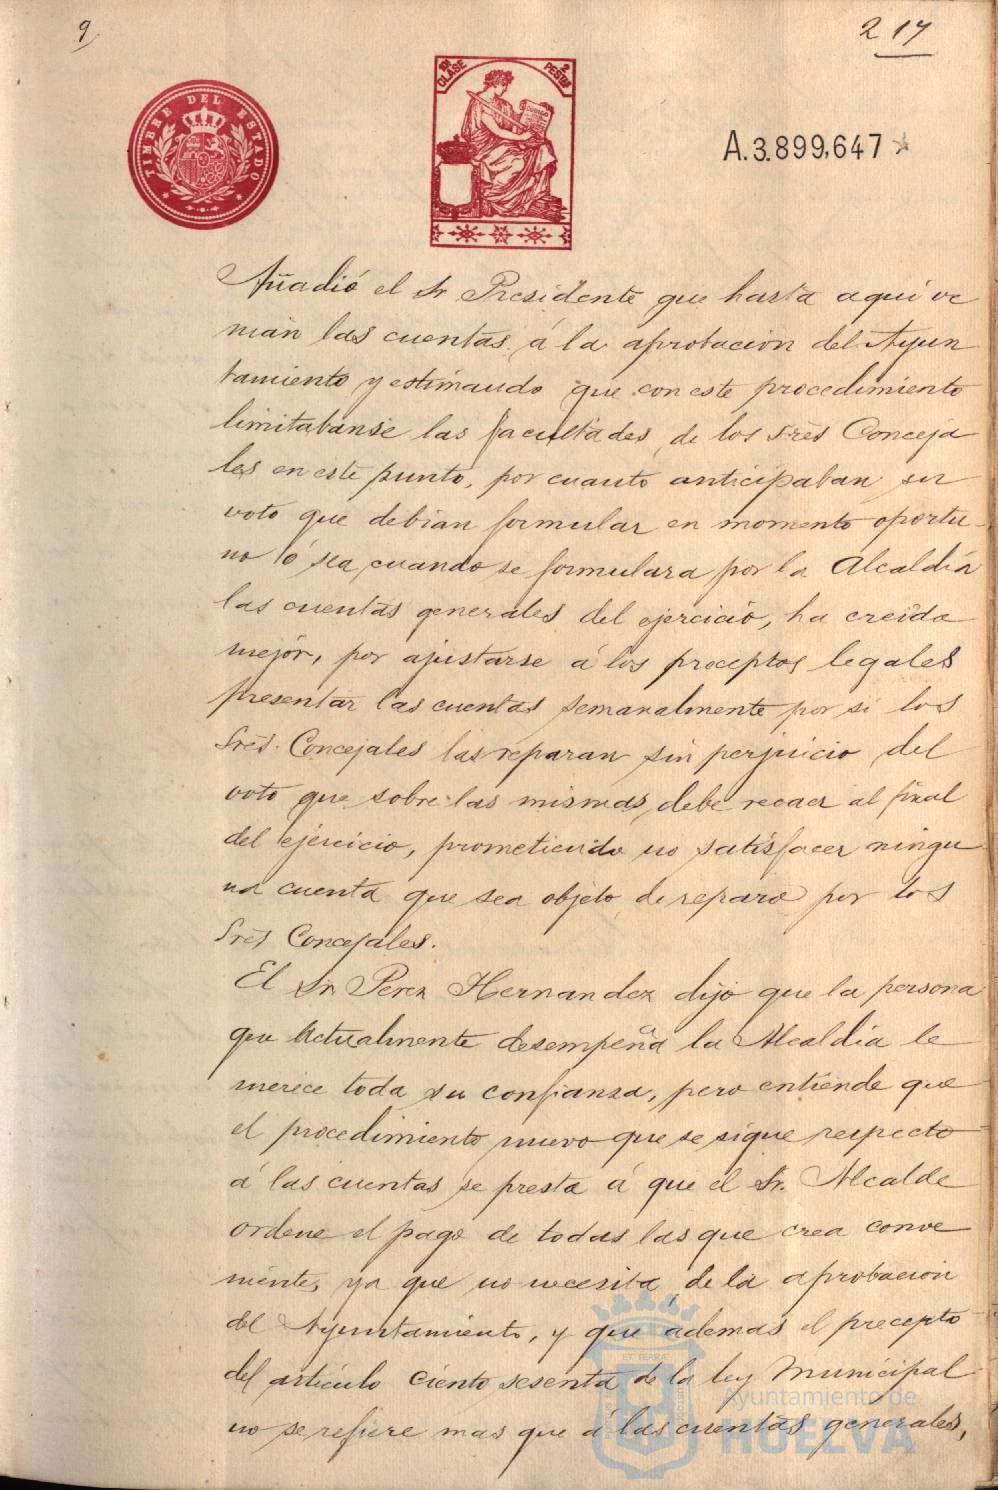 9
217
TIMBRE DEL ESTADO
10ª CLASE
2 PESETAS
A.3.899,647
Añadió el Sr Presidente que hasta aquí ve
nian las cuentas á la aprobacion del Ayun
tamiento y estimando que con este procedimiento
limitabanse las facultades de los Sres Conceja
les en este punto, por cuanto anticipaban su
voto que debian formular en momento oportu-
no ó sea cuando se formulara por la Alcaldía
las cuentas generales del ejercicio, ha creido
mejor, por ajustarse á los preceptos legales
presentar las cuentas semanalmente por si los
Sres. Concejales las reparan sin perjuicio del
voto que sobre las mismas debe recaer al final
del ejercicio, prometiendo no satisfacer ningu
na cuenta que sea objeto de reparo por los
Sres Concejales.
El Sr Perez Hernandez dijo que la persona
que actualmente desempeña la Alcaldía le
merece toda su confianza, pero entiende que
el procedimiento nuevo que se sigue respecto
á las cuentas se presta á que el Sr. Alcalde
ordene el pago de todas las que crea conve
niente, ya que no necesita de la aprobacion
del Ayuntamiento, y que además el precepto
del artículo ciento sesenta de la ley Municipal
no se refiere mas que á las cuentas generales,
Ayuntamiento de
HUELVA